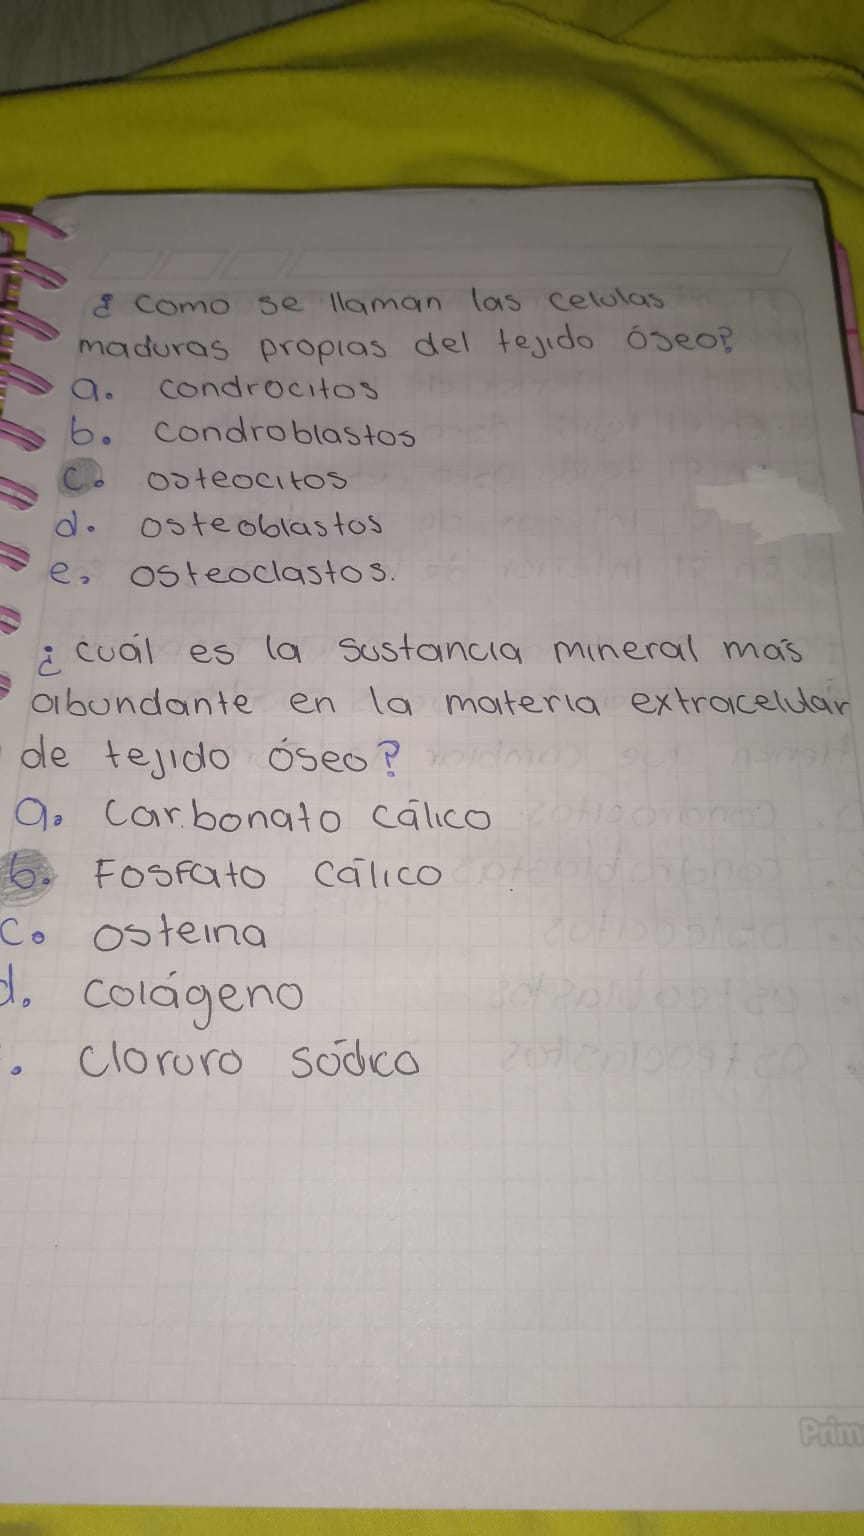 ¿ como se llaman las celulas
maduras propias del tejido óseo?
a. condrocitos
b. condroblastos
c. osteocitos
d. osteoblastos
e. osteoclastos.
¿ cuál es la sustancia mineral más
abundante en la materia extracelular
de tejido óseo?
a. carbonato cálico
b. Fosfato cálico
c. osteina
d. colágeno
. cloruro sódico
Prim